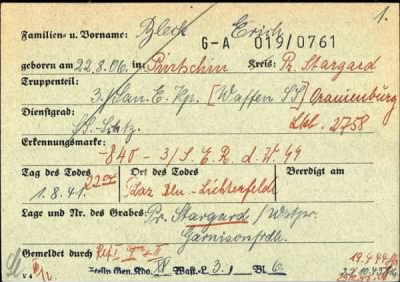 1.
Familien- u. Vorname: Bleck Erich
G-A 019/0761
geboren am 22.8.06. in: Kreis: Pr. Stargard
Truppenteil:
3./San. E. Kp. [Waffen SS] Oranienburg
Dienstgrad: 2758
SS-Schtz.
Erkennungsmarke:
-840- 3/S.E.R.d.V.44
Tag des Todes Ort des Todes Beerdigt am
1.8.41. 22 00 Laz. Bln.-Lichterfelde
Lage und Nr. des Grabes: Pr. Stargard / Westpr.
Garnisonfrdh.
Gemeldet durch
Gen. Kdo. Wast.-L. 3 Bl. 6